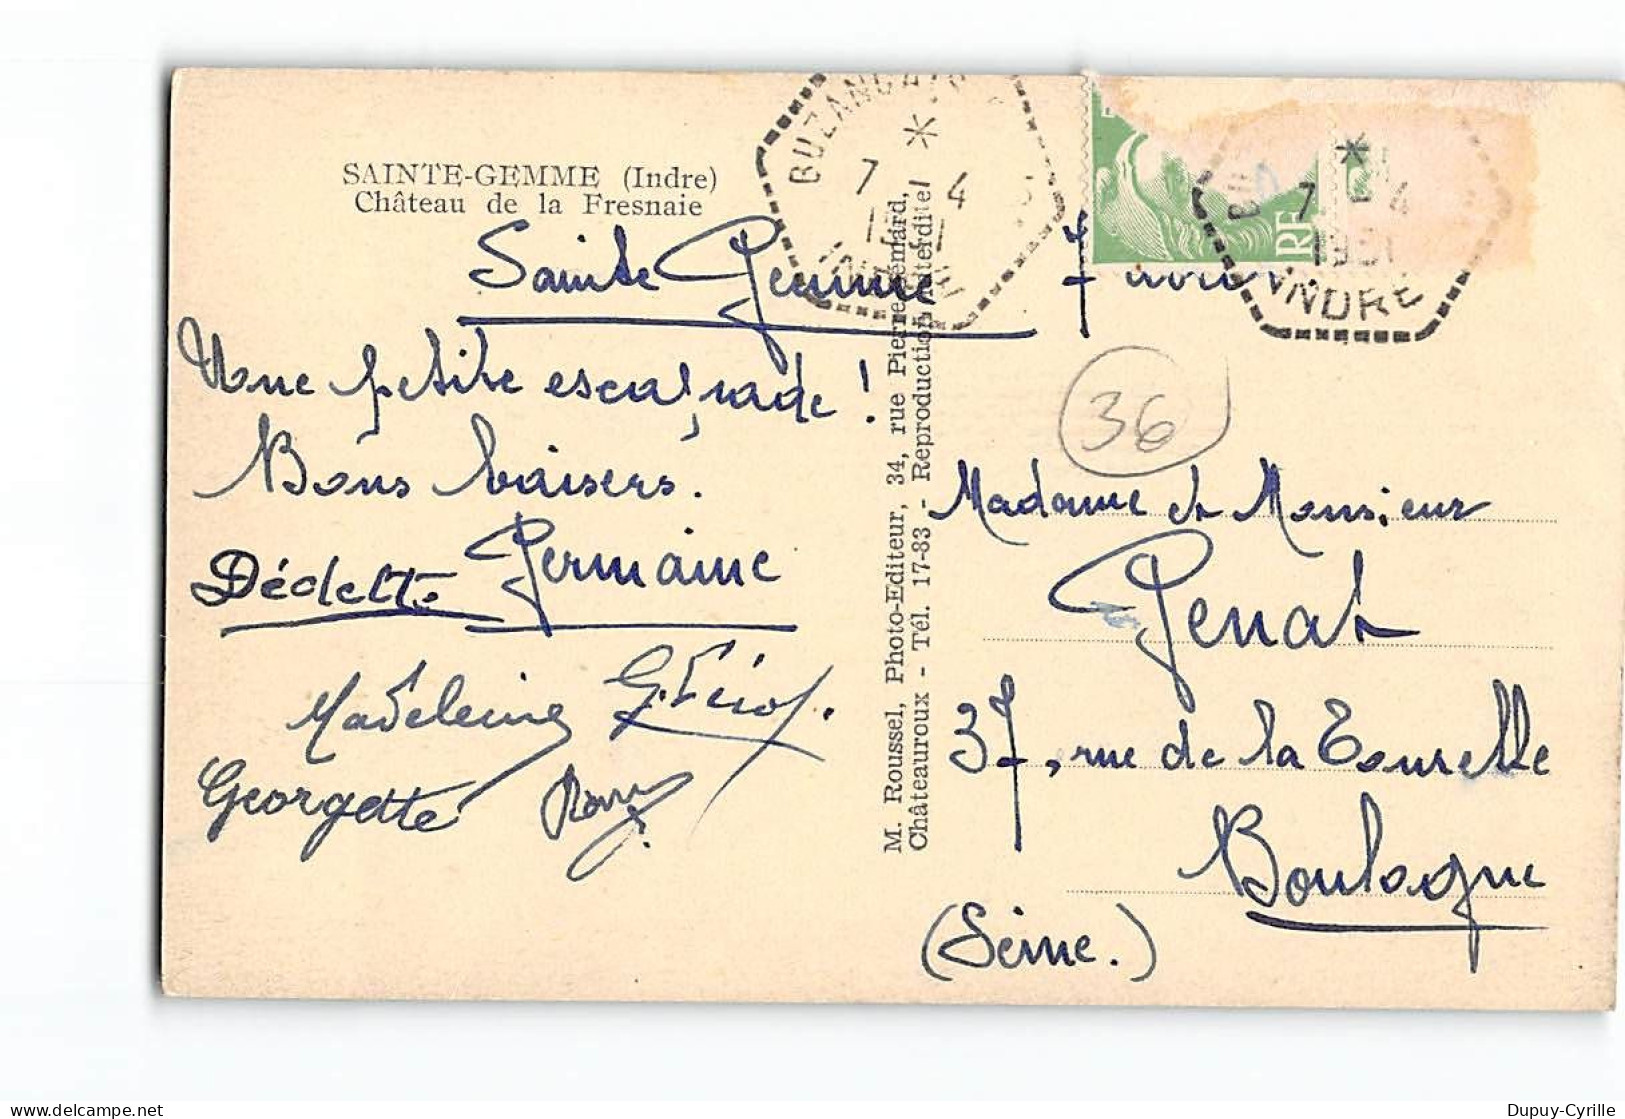 SAINTE-GEMME (Indre)
Château de la Fresnaie
Sainte Gemme 7 avril
Une petite escapade !
Bons baisers.
Dédette Germaine
Madeleine
Georgette
M. Roussel, Photo-Editeur, 34, rue Pierre Sémard,
Châteauroux - Tél. 17-83 - Reproduction interdite
BUZANCAIS
*
7 4
INDRE
RE
*
7 4
1951
INDRE
36
Madame et Monsieur
Penat
37, rue de la Tourelle
Boulogne
(Seine.)
Dupuy-Cyrille